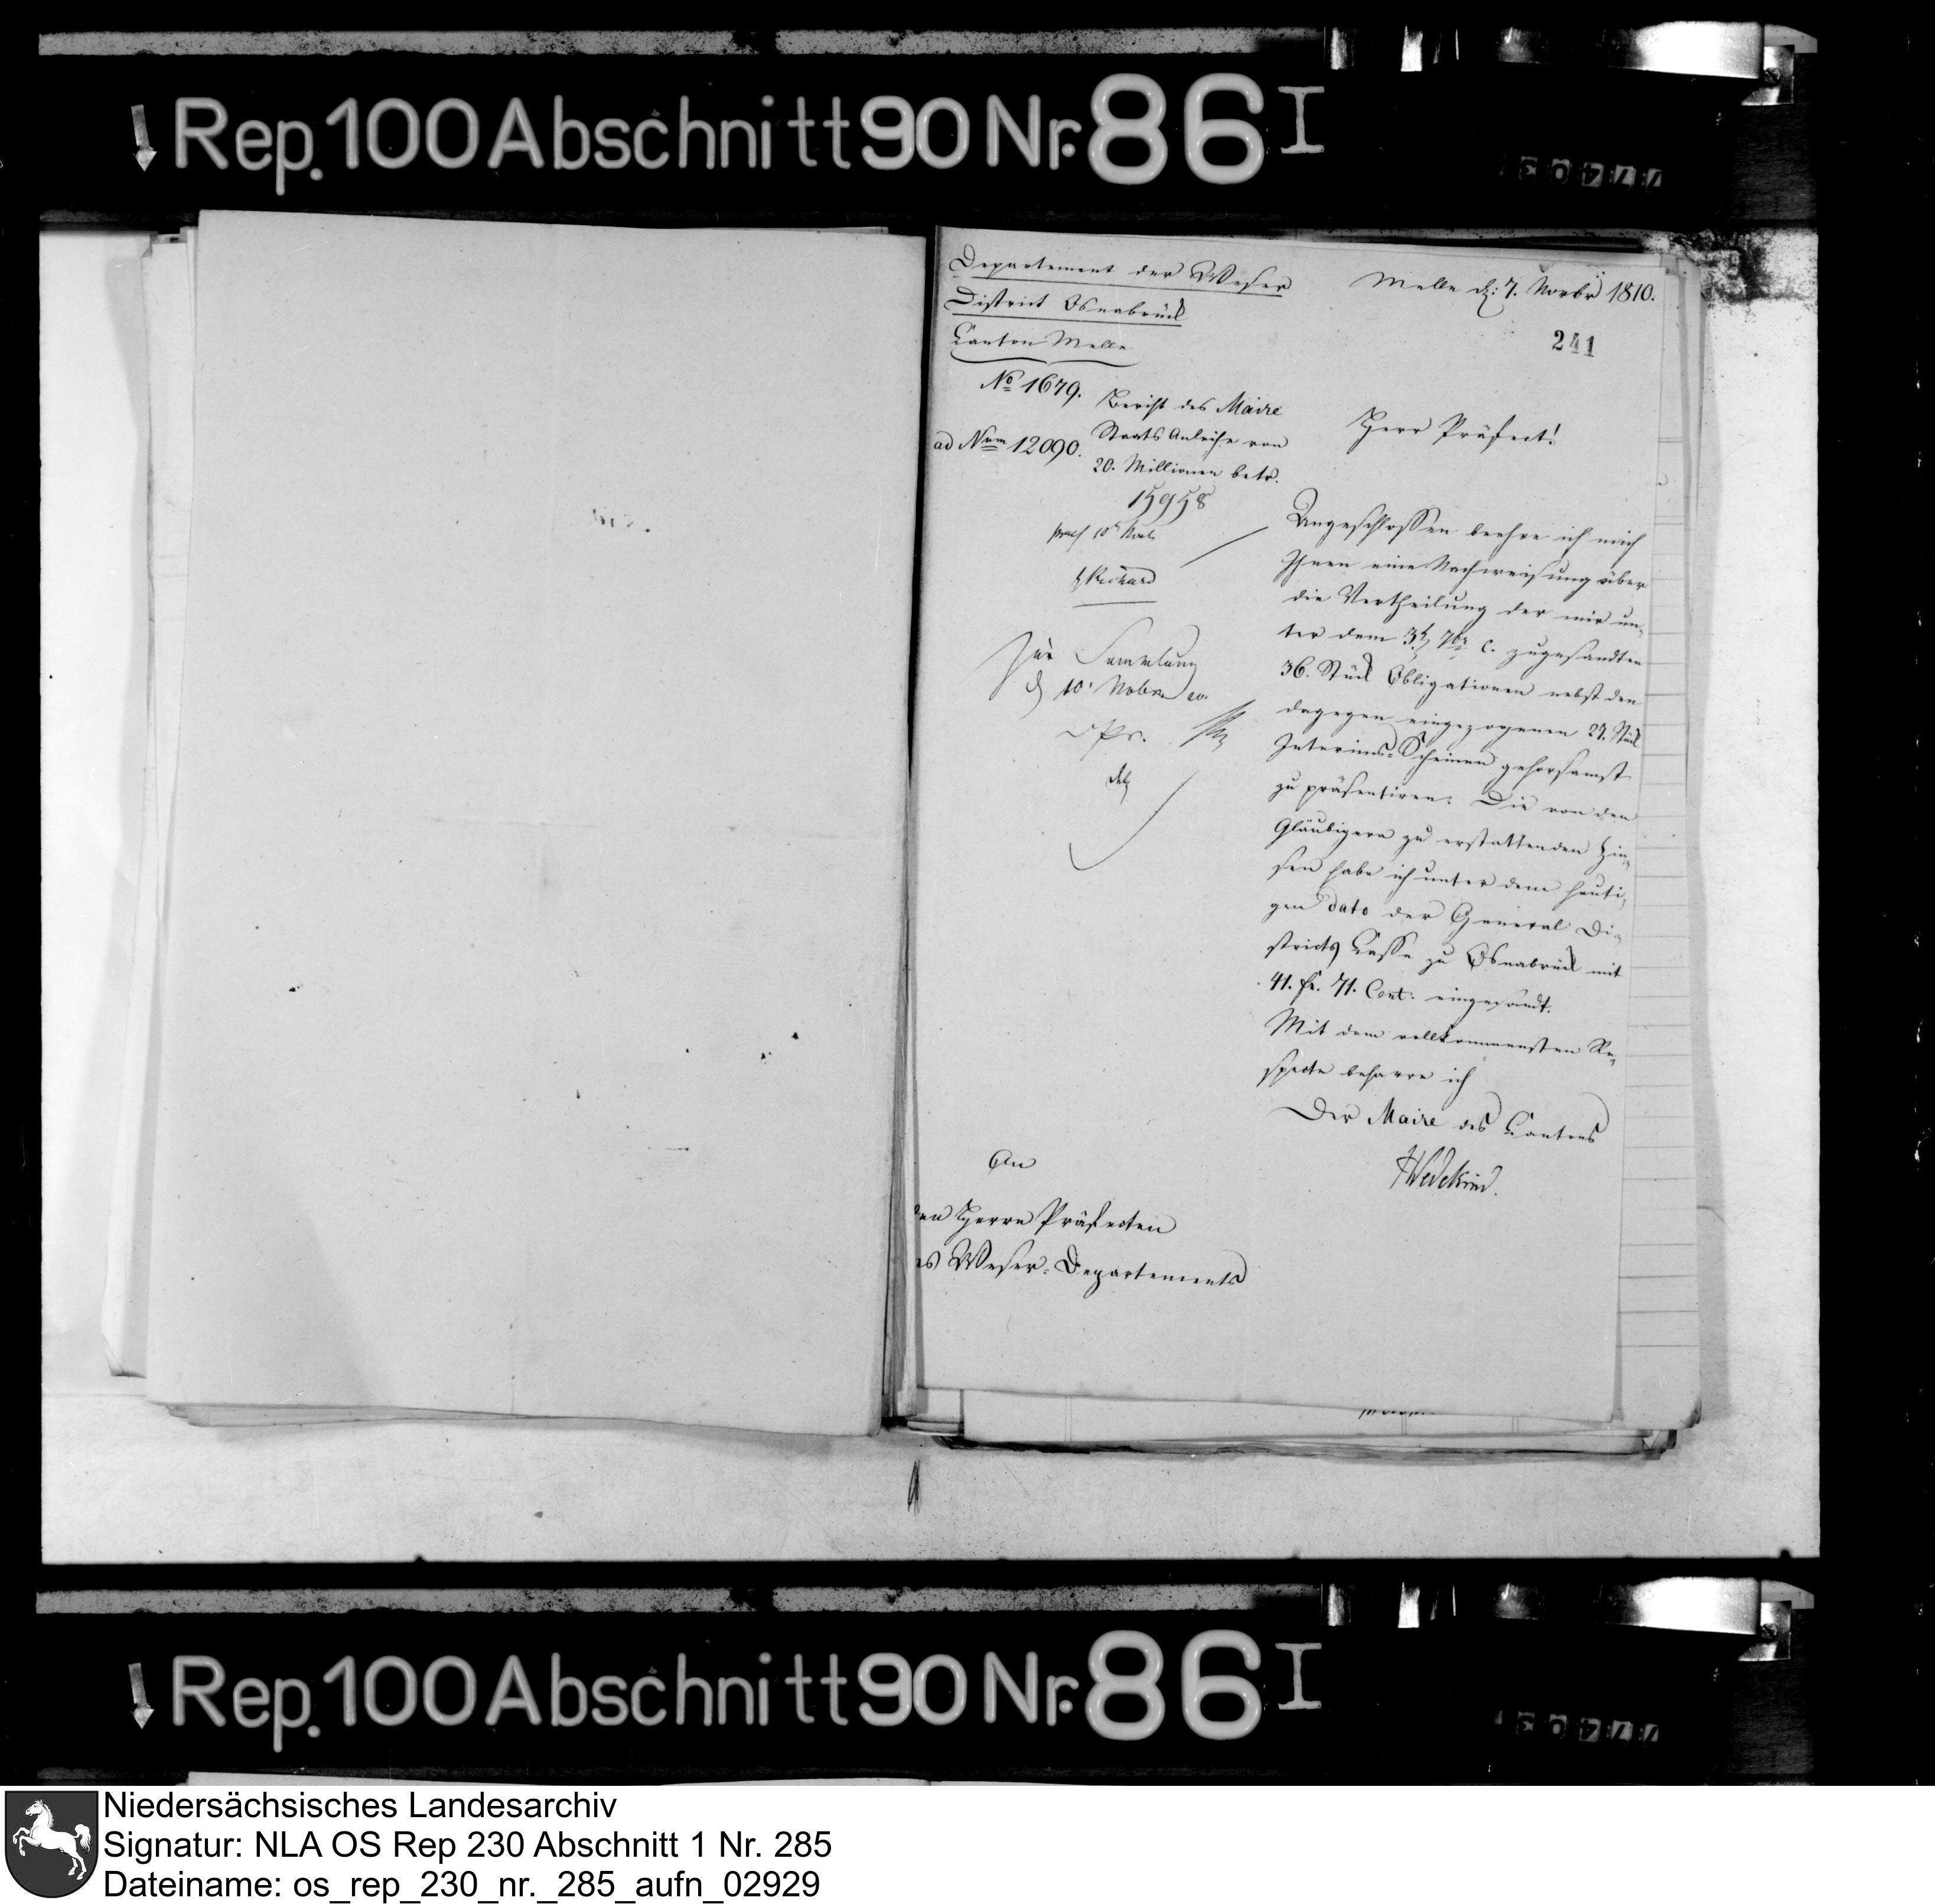 Rep. 100 Abschnitt 90 Nr. 86 I
Departement der Weser
District Osnabrück
Canton Melle
Melle d: 7. Novbr 1810.
241
No 1679.
ad Num 12090.
Bericht des Maire
Staats Anleihe von
20. Millionen betr.
15958
Herr Präfect!
praes 10t Novb
Richard
Zur Sammlung
d 10. Nobr
Angeschlossen beehre ich mich
Ihnen eine Nachweisung über
die Vertheilung der mir un-
ter dem 3t 7br c. zugesandten
36. Stück Obligationen nebst den
dagegen eingezogenen 27. Stück
Interims-Scheinen gehorsamst
zu präsentiren. Die von den
Gläubigern zu erstattenden Zin-
sen habe ich unter dem heuti-
gen dato der General Di-
stricts Casse zu Osnabrück mit
41. fr. 71. Cent. eingesandt.
Mit dem vollkommensten Re-
specte beharre ich
Der Maire des Cantons
Wedekind.
An
den Herrn Präfecten
es Weser-Departements
Rep. 100 Abschnitt 90 Nr. 86 I
Niedersächsisches Landesarchiv
Signatur: NLA OS Rep 230 Abschnitt 1 Nr. 285
Dateiname: os_rep_230_nr._285_aufn_02929